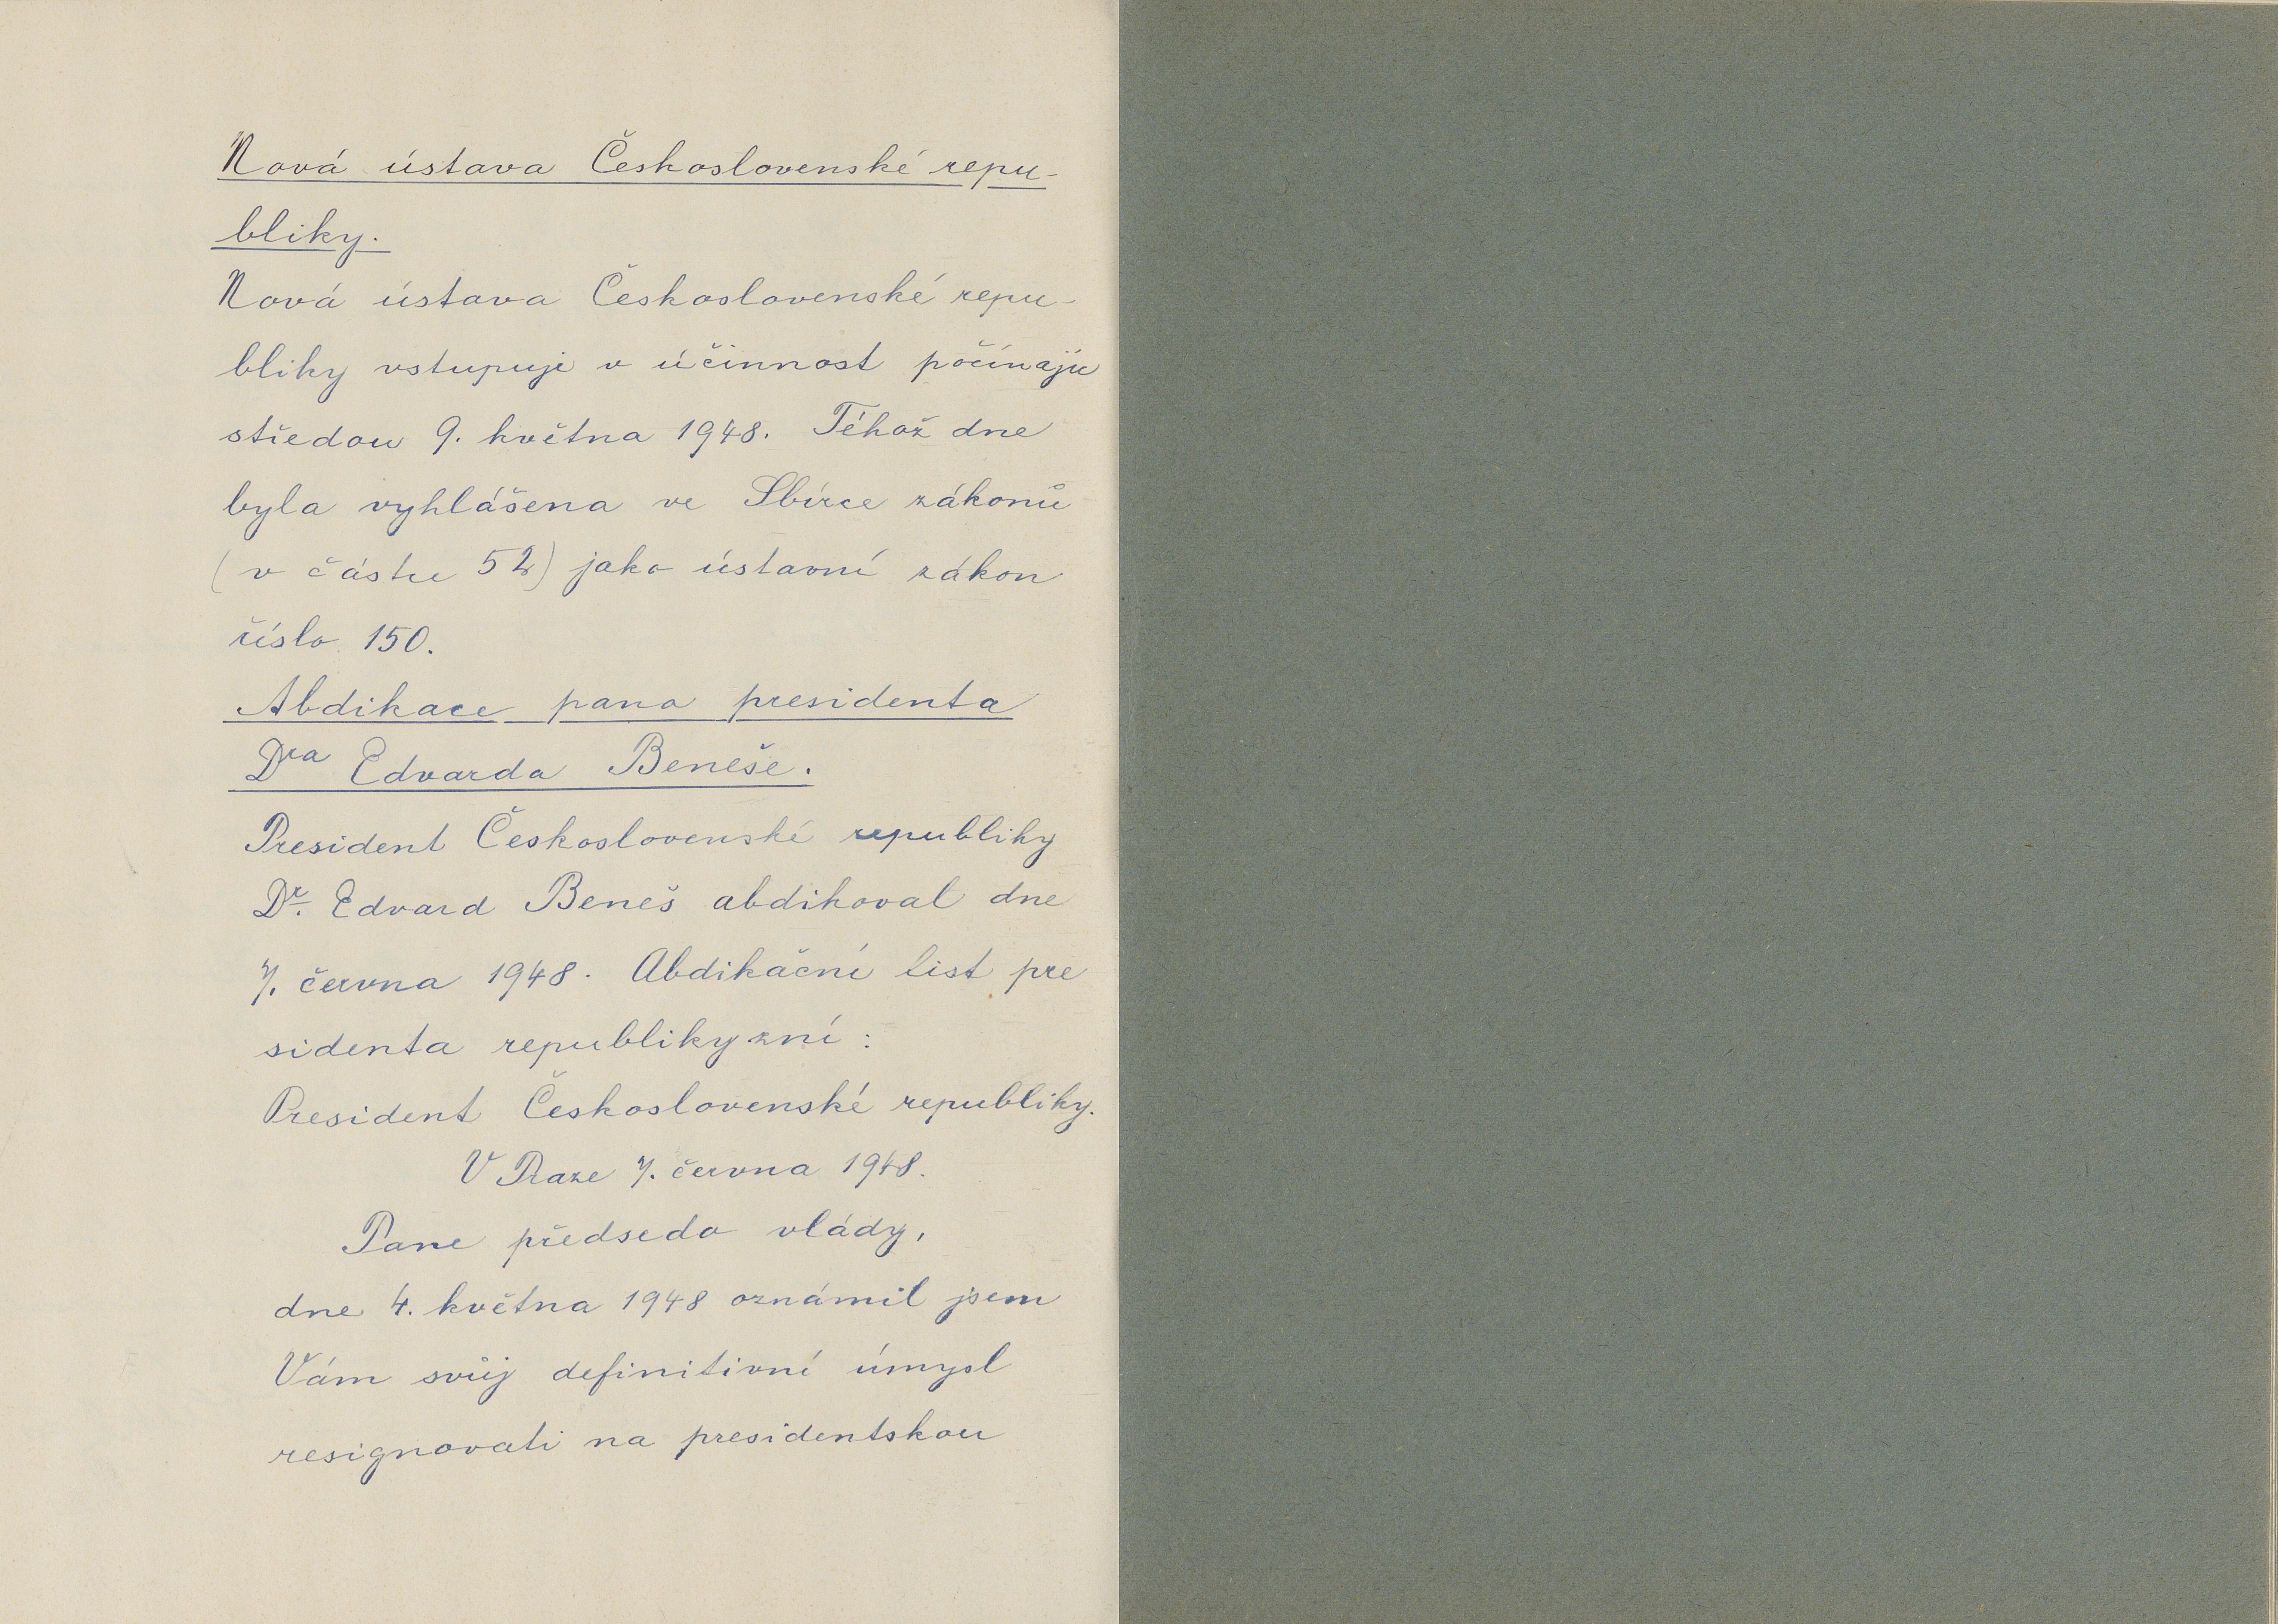 Nová ústava Československé repu-
bliky.
Nová ústava Československé repu-
bliky vstupuje v účinnost počínaje
středou 9. května 1948. Téhož dne
byla vyhlášena ve Sbírce zákonů
(v částce 52) jako ústavní zákon
číslo 150.
Abdikace pana presidenta
Dra Edvarda Beneše.
President Československé republiky
Dr. Edvard Beneš abdikoval dne
7. června 1948. Abdikační list pre
sidenta republiky zní:
President Československé republiky.
V Praze 7. června 1948.
Pane předsedo vlády,
dne 4. května 1948 oznámil jsem
Vám svůj definitivní úmysl
resignovati na presidentskou